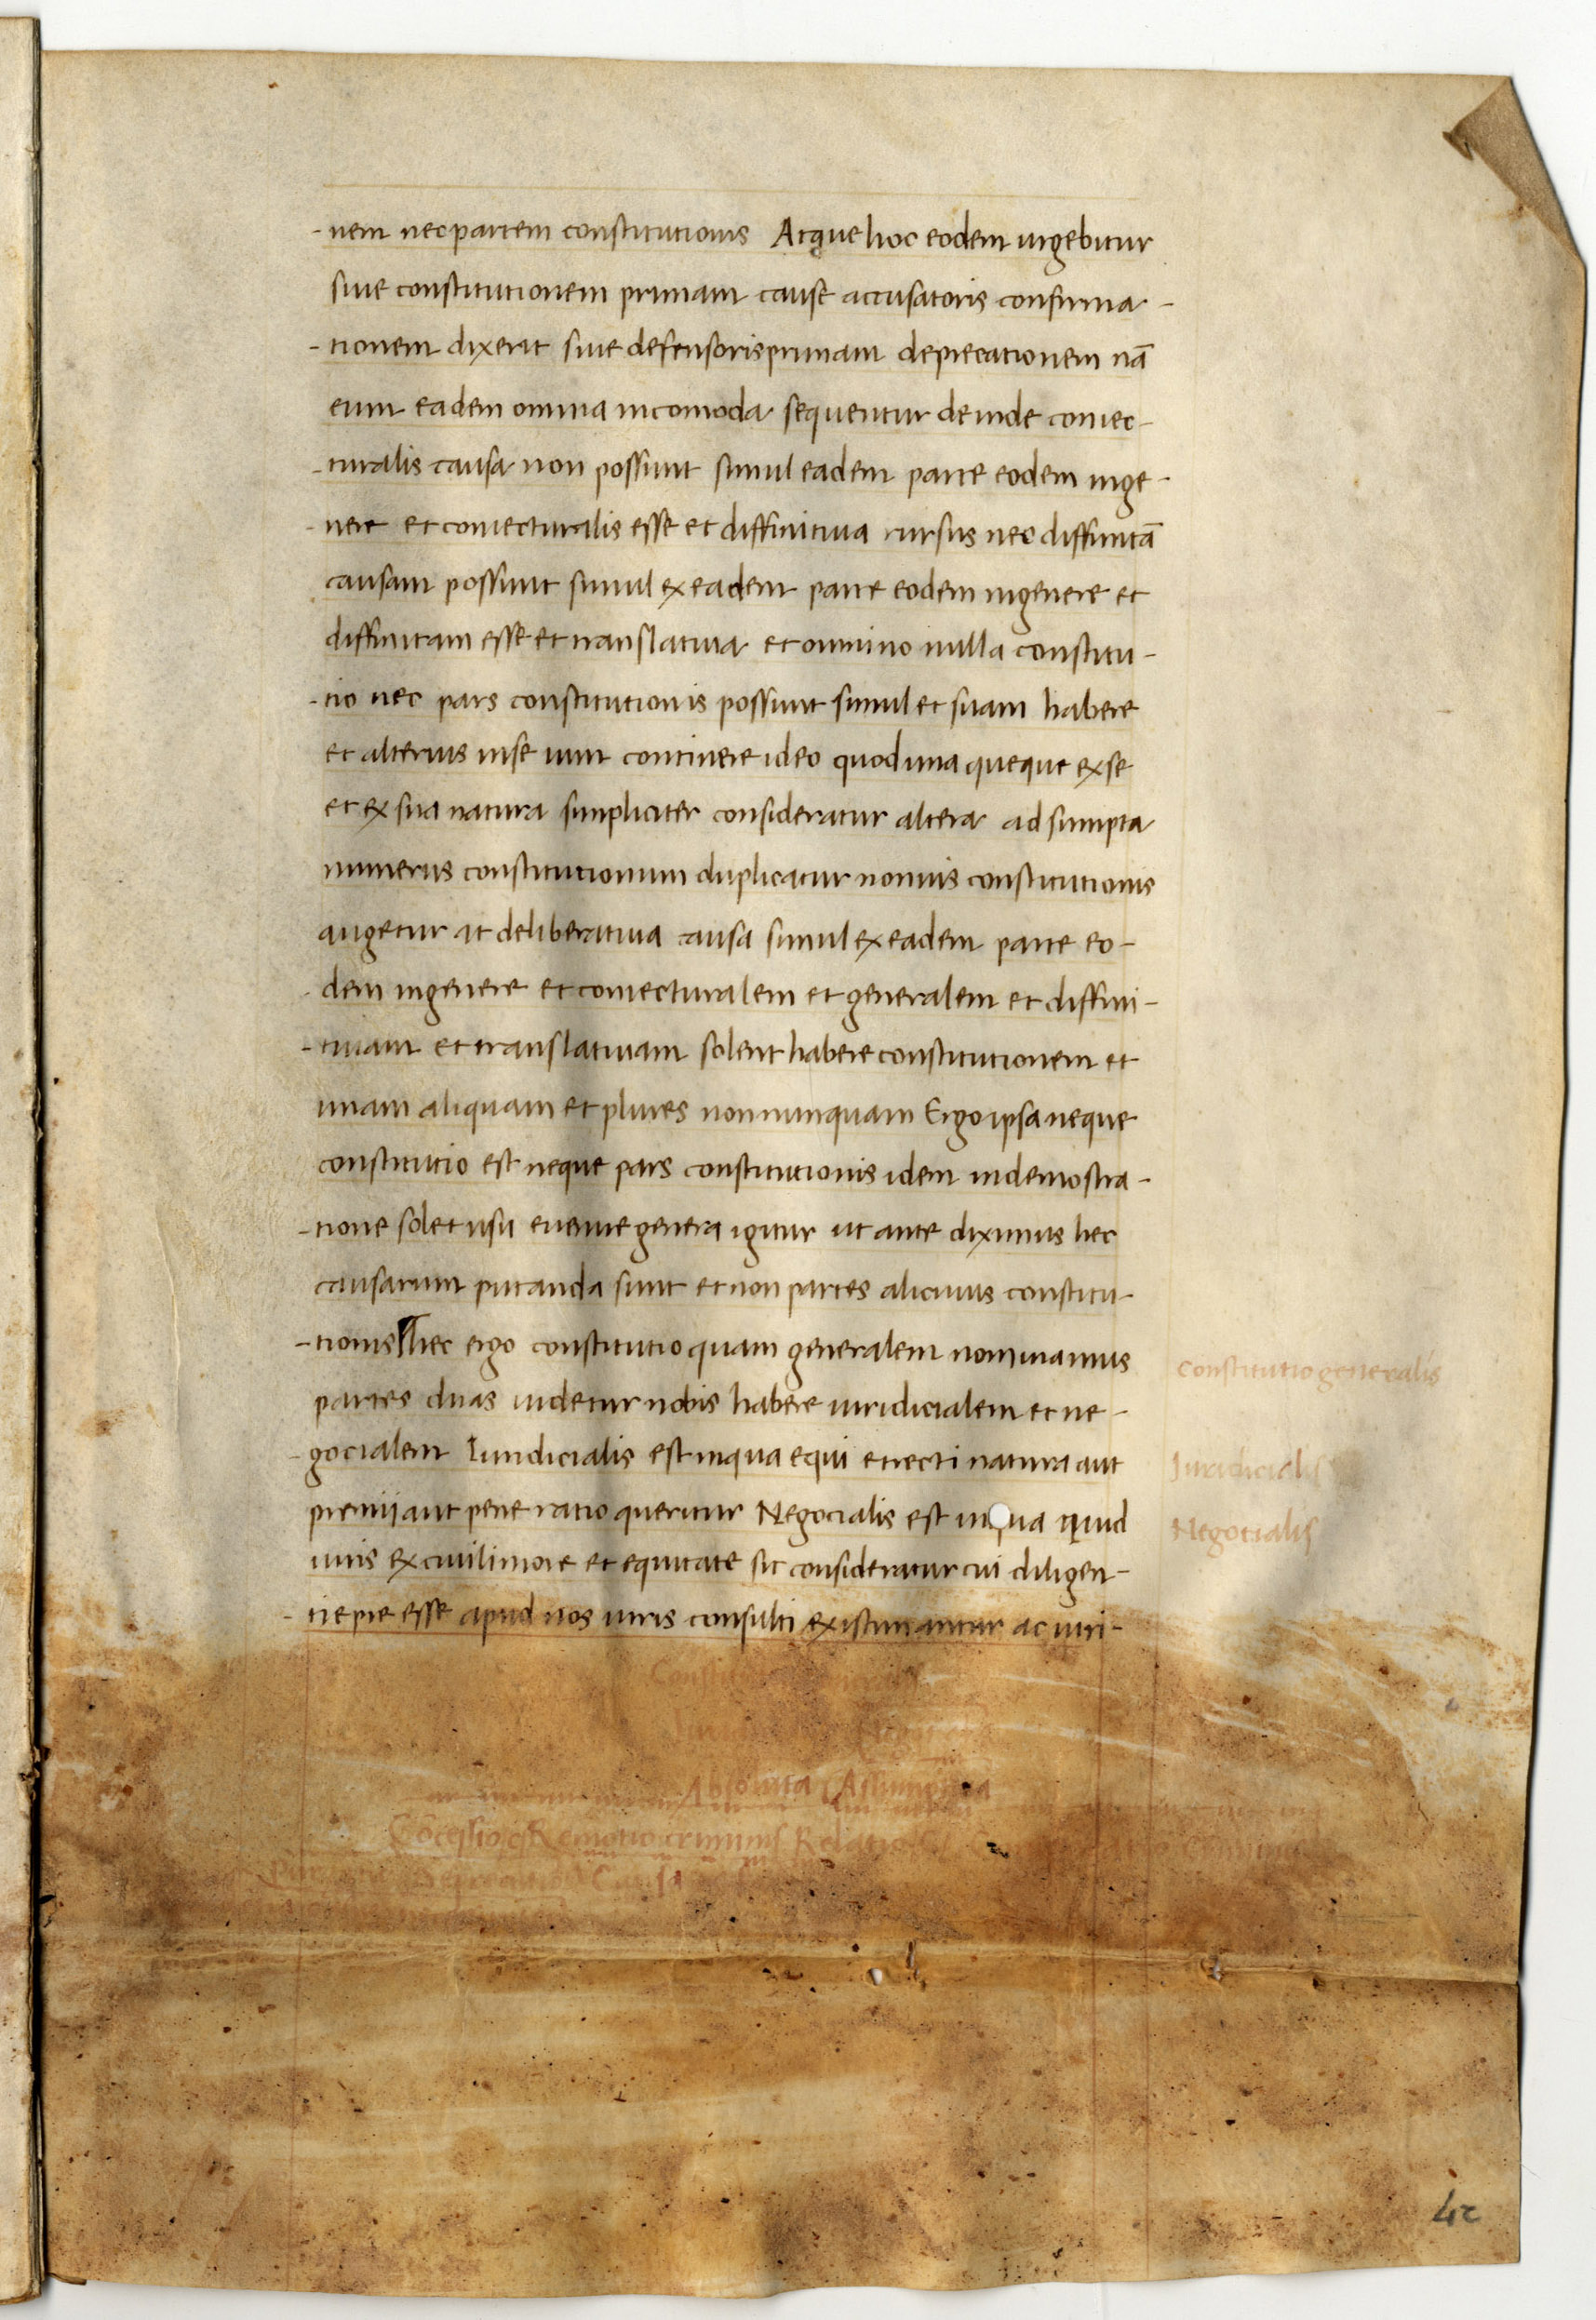 -nem nec partem constitutionis Atque hoc eodem urgebitur
siue constitutionem primam cause accusatoris confirma-
-tionem dixerit siue defensoris primam deprecationem nā
eum eadem omnia incomoda sequentur deinde coniec-
-turalis causa non possunt simul eadem parte eodem inge-
-nere et coniecturalis esse et diffinitiua rursus nec diffinitā
causam possunt simul ex eadem parte eodem ingenere et
diffinitam esse et translatiua et omnino nulla constitu-
-tio nec pars constitutionis possunt simul et suam habere
et alterius inse uim continere ideo quod una queque ex se
et ex sua natura simpliciter consideratur altera adsumpta
numerus constitutionum duplicatur non uis constitutionis
augetur at deliberatiua causa simul ex eadem parte eo-
-dem ingenere et coniecturalem et generalem et diffini-
-tiuam et translatiuam solent habere constitutionem et
unam aliquam et plures non nunquam Ergo ipsa neque
constitutio est neque pars constitutionis idem indemostra-
-tione solet usu euenire genera igitur ut ante diximus hec
causarum putanda sunt et non partes alicuius constitu-
-tionis hec ergo constitutio quam generalem nominamus
partes duas uidetur nobis habere iuridicialem et ne-
-gocialem Iuridicialis est inqua equi et recti natura aut
premij aut pene ratio queritur Negocialis est inqua quid
iuris ex ciuili more et equitate sit consideratur cui diligen-
-tie pre esse apud nos iuris consulti existimantur ac iuri-
Constitutio generalis
Iuridicialis
Negotialis
Absoluta Assumptiua
Cōcessio Remotio criminis Relatio
Deprecatio
42